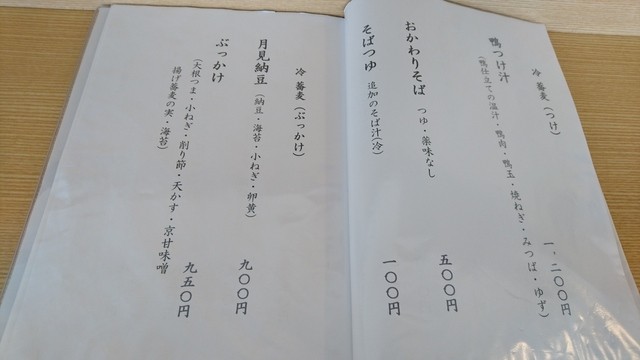 冷 蕎麦(つけ)
鴨つけ汁
(鴨仕立ての温汁・鴨肉・鴨玉・焼ねぎ・みつば・ゆず)
一、二〇〇円
おかわりそば つゆ・薬味なし
五〇〇円
そばつゆ 追加のそば汁(冷)
一〇〇円
冷 蕎麦(ぶっかけ)
月見納豆 (納豆・海苔・小ねぎ・卵黄)
九〇〇円
ぶっかけ
(大根つま・小ねぎ・削り節・天かす・京甘味噌
揚げ蕎麦の実・海苔)
九五〇円